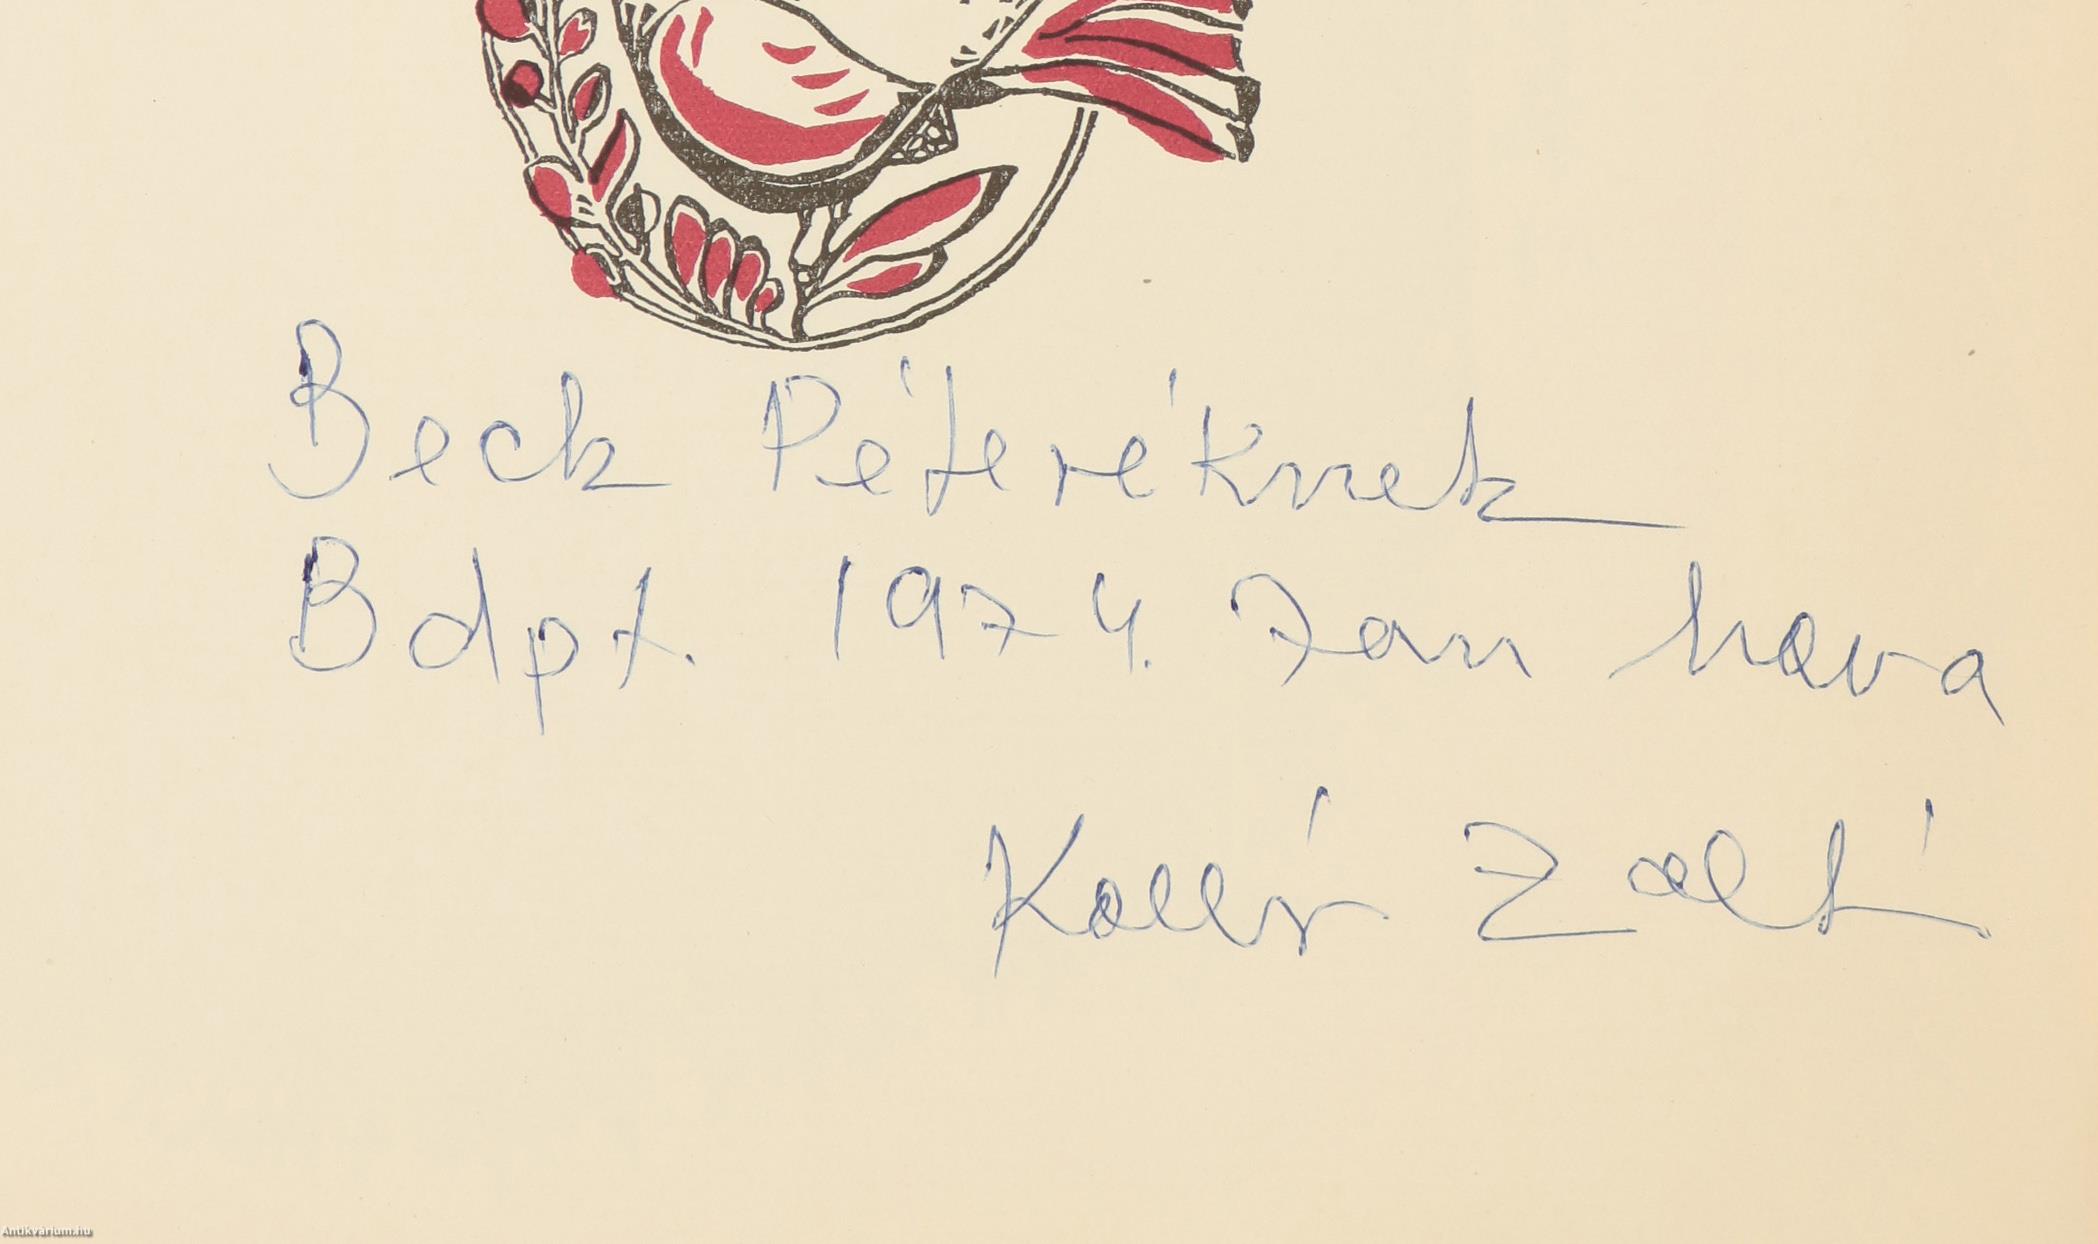 Beck Péteréknek
Bdpt. 1974. Jan hava
Kallós Zoltán
Antikvárium.hu